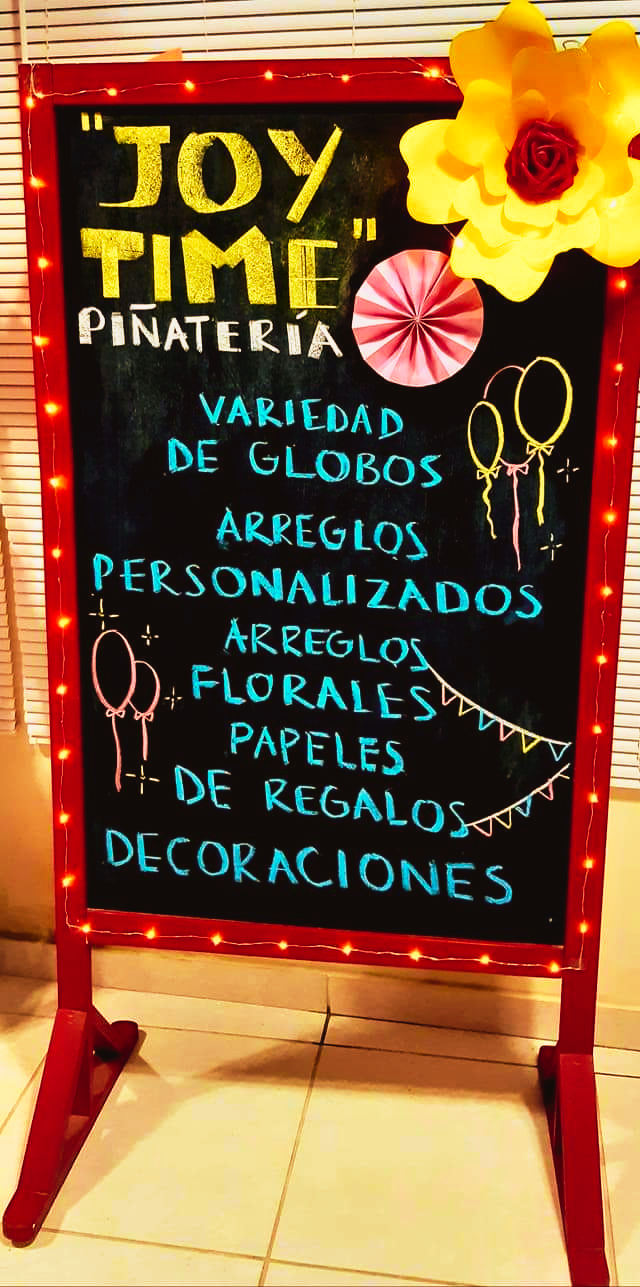 "JOY
TIME"
PIÑATERÍA
VARIEDAD
DE GLOBOS
ARREGLOS
PERSONALIZADOS
ARREGLOS
FLORALES
PAPELES
DE REGALOS
DECORACIONES